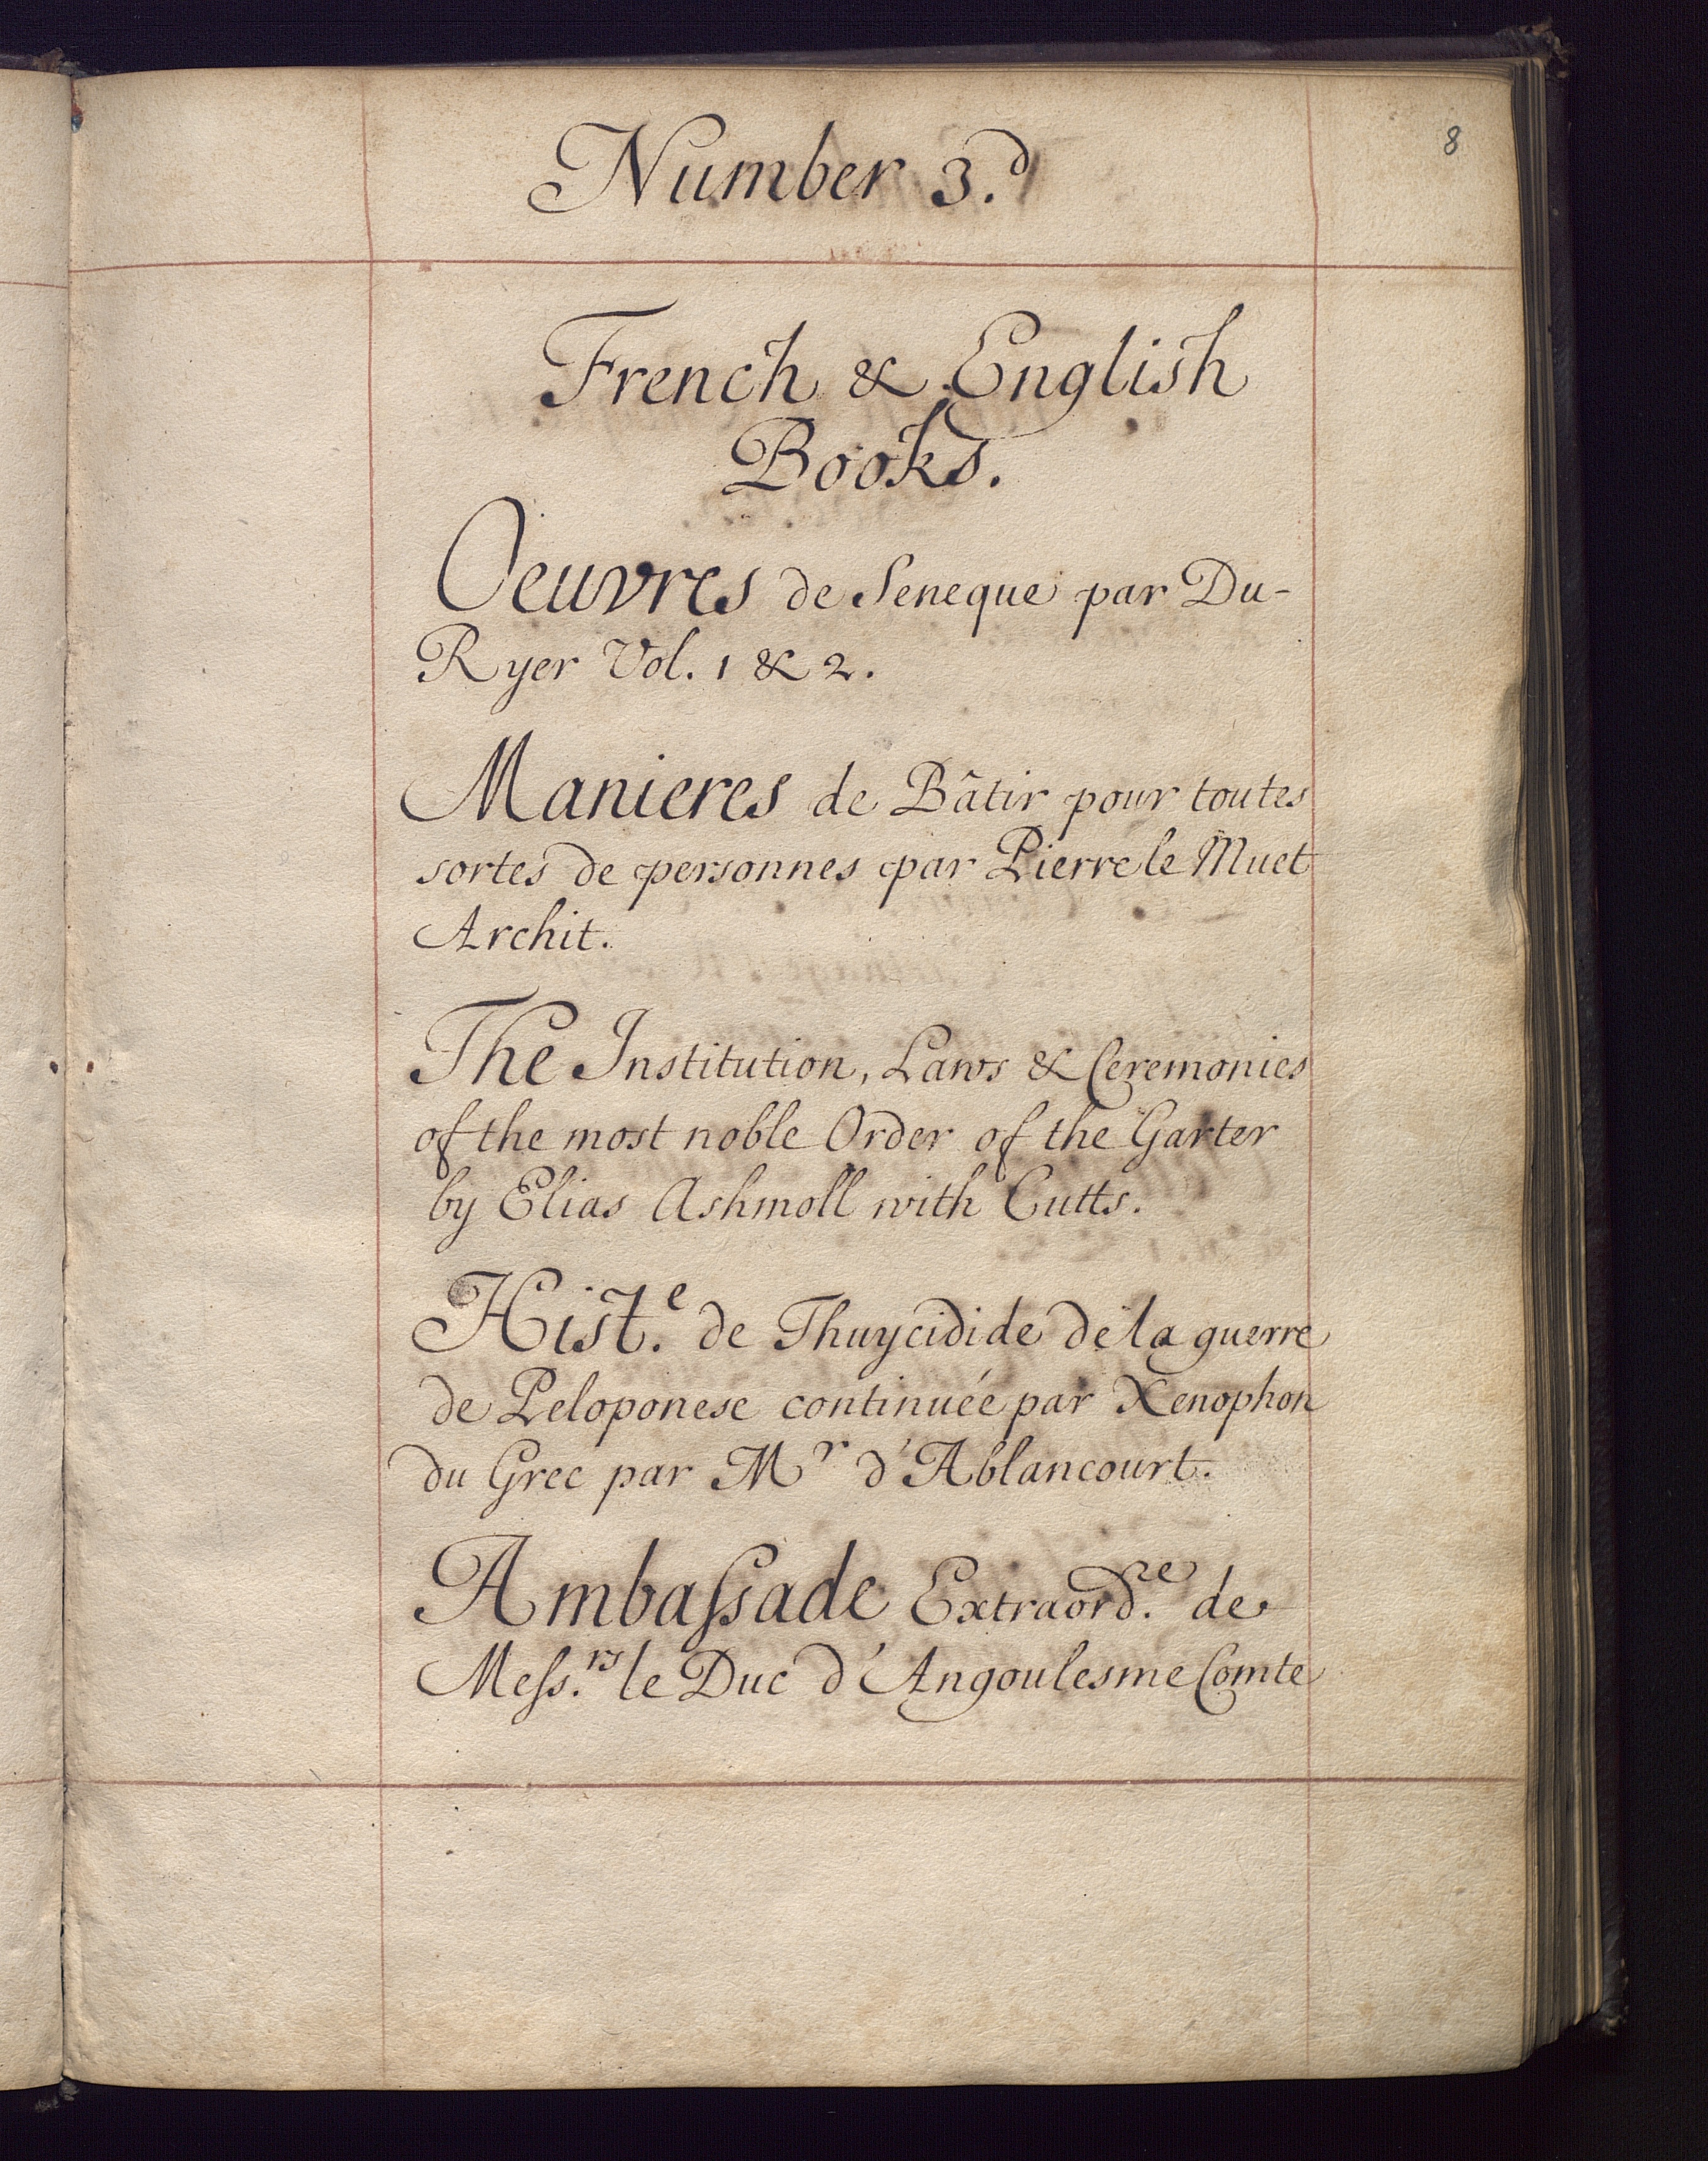 8
Number 3.d
French & English
Books.
Oeuvres de Seneque par Du-
Ryer Vol. 1 & 2.
Manieres de Bâtir pour toutes
sortes de personnes par Pierre le Muet
Archit.
The Institution, Laws & Ceremonies
of the most noble Order of the Garter
by Elias Ashmoll with Cutts.
Hist.e de Thuycidide de la guerre
de Peloponese continuée par Xenophon
du Grec par Mr d'Ablancourt.
Ambaſsade Extraord.re de
Meſs.rs le Duc d'Angoulesme Comte